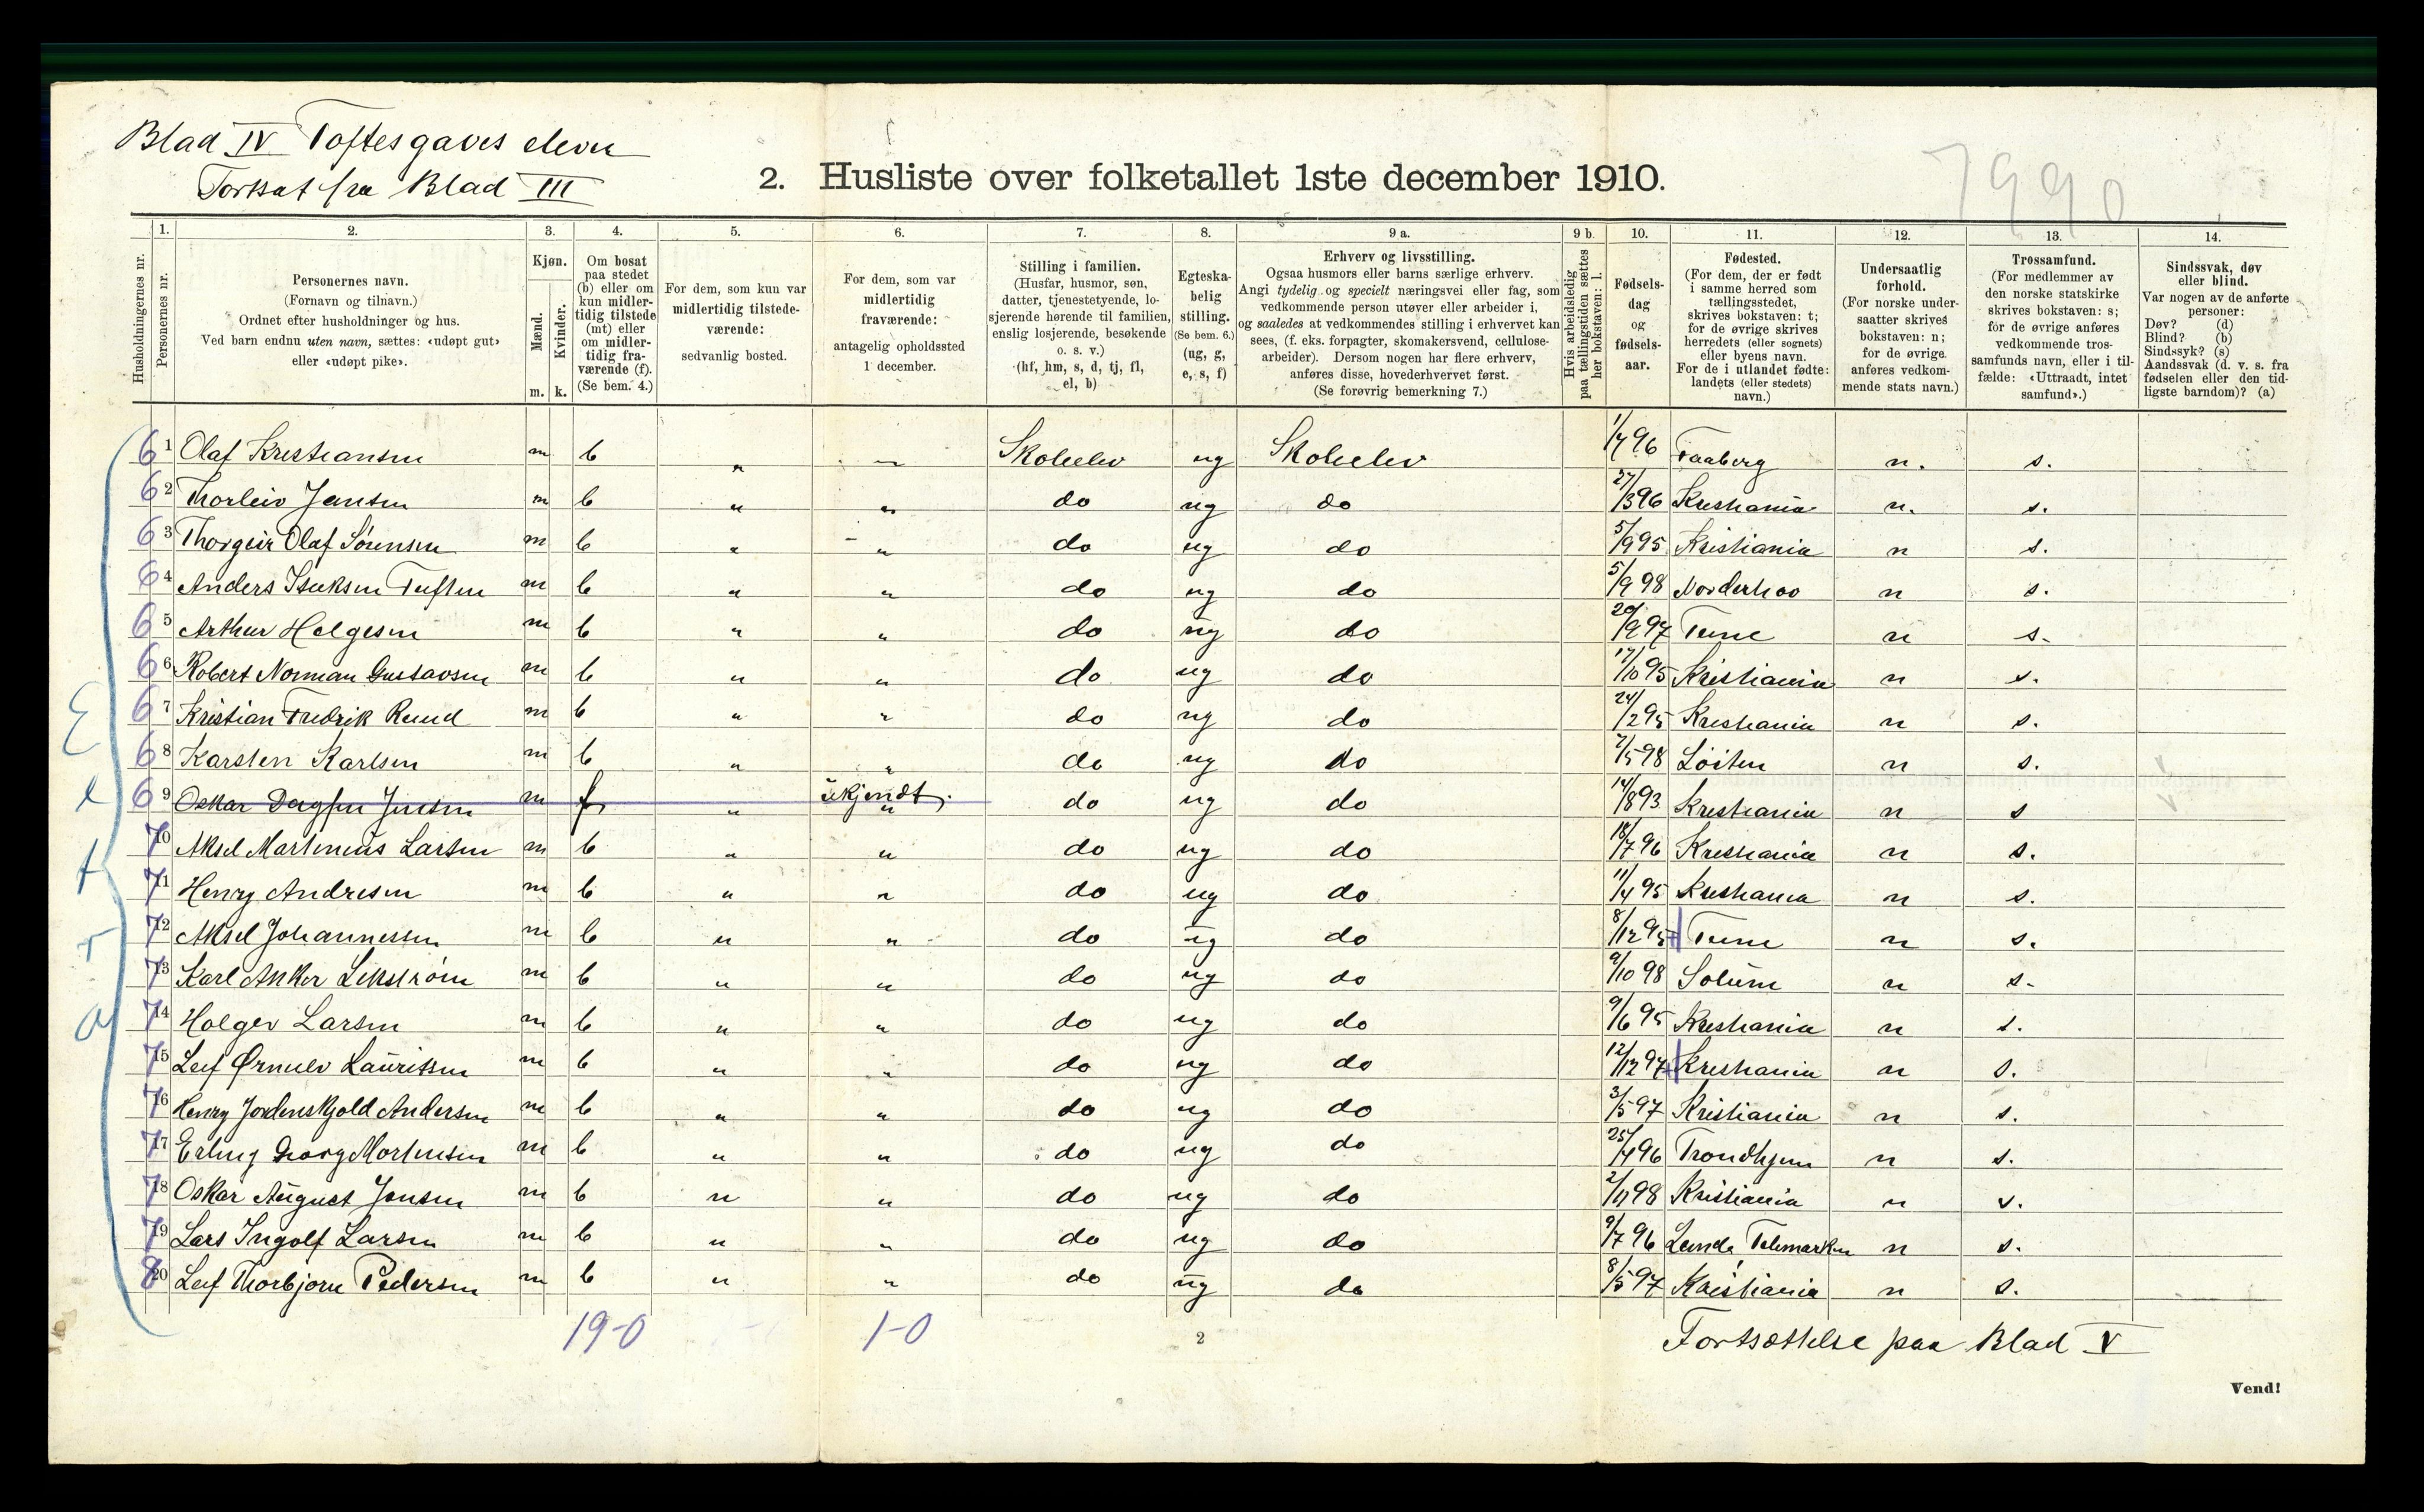 Blad IV Toftesgaves elever
Fortsat fra Blad III
2. Husliste over folketallet 1ste december 1910.
7990
Husholdningernes nr.
1. Personernes nr.
2. Personernes navn.
(Fornavn og tilnavn.)
Ordnet efter husholdninger og hus.
Ved barn endnu uten navn, sættes: «udøpt gut»
eller «udøpt pike».
3. Kjøn.
Mænd. Kvinder.
m. k.
4. Om bosat
paa stedet
(b) eller om
kun midler-
tidig tilstede
(mt) eller
om midler-
tidig fra-
værende (f).
(Se bem. 4.)
5. For dem, som kun var
midlertidig tilstede-
værende:
sedvanlig bosted.
6. For dem, som var
midlertidig
fraværende:
antagelig opholdssted
1 december.
7. Stilling i familien.
(Husfar, husmor, søn,
datter, tjenestetyende, lo-
sjerende hørende til familien,
enslig losjerende, besøkende
o. s. v.)
(hf, hm, s, d, tj, fl,
el, b)
8. Egteska-
belig
stilling.
(Se bem. 6.)
(ug, g,
e, s, f)
9 a. Erhverv og livsstilling.
Ogsaa husmors eller barns særlige erhverv.
Angi tydelig og specielt næringsvei eller fag, som
vedkommende person utøver eller arbeider i,
og saaledes at vedkommendes stilling i erhvervet kan
sees, (f. eks. forpagter, skomakersvend, cellulose-
arbeider). Dersom nogen har flere erhverv,
anføres disse, hovederhvervet først.
(Se forøvrig bemerkning 7.)
9 b. Hvis arbeidsledig
paa tællingstiden sættes
her bokstaven: l.
10. Fødsels-
dag
og
fødsels-
aar.
11. Fødested.
(For dem, der er født
i samme herred som
tællingsstedet,
skrives bokstaven: t;
for de øvrige skrives
herredets (eller sognets)
eller byens navn.
For de i utlandet fødte:
landets (eller stedets)
navn.)
12. Undersaatlig
forhold.
(For norske under-
saatter skrives
bokstaven: n;
for de øvrige
anføres vedkom-
mende stats navn.)
13. Trossamfund.
(For medlemmer av
den norske statskirke
skrives bokstaven: s;
for de øvrige anføres
vedkommende tros-
samfunds navn, eller i til-
fælde: «Uttraadt, intet
samfund».)
14. Sindssvak, døv
eller blind.
Var nogen av de anførte
personer:
Døv? (d)
Blind? (b)
Sindssyk? (s)
Aandssvak (d. v. s. fra
fødselen eller den tid-
ligste barndom)? (a)
61 Olaf Kristiansen m b " " Skoleelev ug Skoleelev 1/7 96 Faaberg n. s.
62 Thorleiv Jensen m b " " do ug do 27/3 96 Kristiania n. s.
63 Thorgeir Olaf Sørensen m b " " do ug do 5/9 95 Kristiania n s.
64 Anders Isaksen Tuften m b " " do ug do 5/9 98 Norderhov n s.
65 Arthur Helgesen m b " " do ug do 20/9 97 Tune n s.
66 Robert Norman Gustavsen m b " " do ug do 17/10 95 Kristiania n s.
67 Kristian Fredrik Ruud m b " " do ug do 24/2 95 Kristiania n s.
68 Karsten Karlsen m b " " do ug do 7/5 98 Løiten n s.
69 Oskar Dagfin Jensen m f " ukjendt. " do ug do 14/8 93 Kristiania n s
70 Aksel Martinius Larsen m b " " do ug do 18/7 96 Kristiania n s.
71 Henry Andresen m b " " do ug do 11/4 95 Kristiania n s.
72 Aksel Johannessen m b " " do ug do 8/12 95 Tune n s.
73 Karl Anker Lekstrøm m b " " do ug do 9/10 98 Solum n s.
74 Holger Larsen m b " " do ug do 9/6 95 Kristiania n s.
75 Leif Ørnulv Lauritsen m b " " do ug do 12/12 97 Kristiania n s.
76 Henry Jordenskjold Andersen m b " " do ug do 3/5 97 Kristiania n s.
77 Erling Georg Mortensen m b " " do ug do 25/4 96 Trondhjem n s.
78 Oskar August Jensen m b " " do ug do 2/11 98 Kristiania n s.
79 Lars Ingolf Larsen m b " " do ug do 9/7 96 Lunde, Telemarken n s.
80 Leif Thorbjørn Pedersen m b " " do ug do 8/5 97 Kristiania n s.
Extra
19-0 1-0
2
Fortsættelse paa Blad V
Vend!